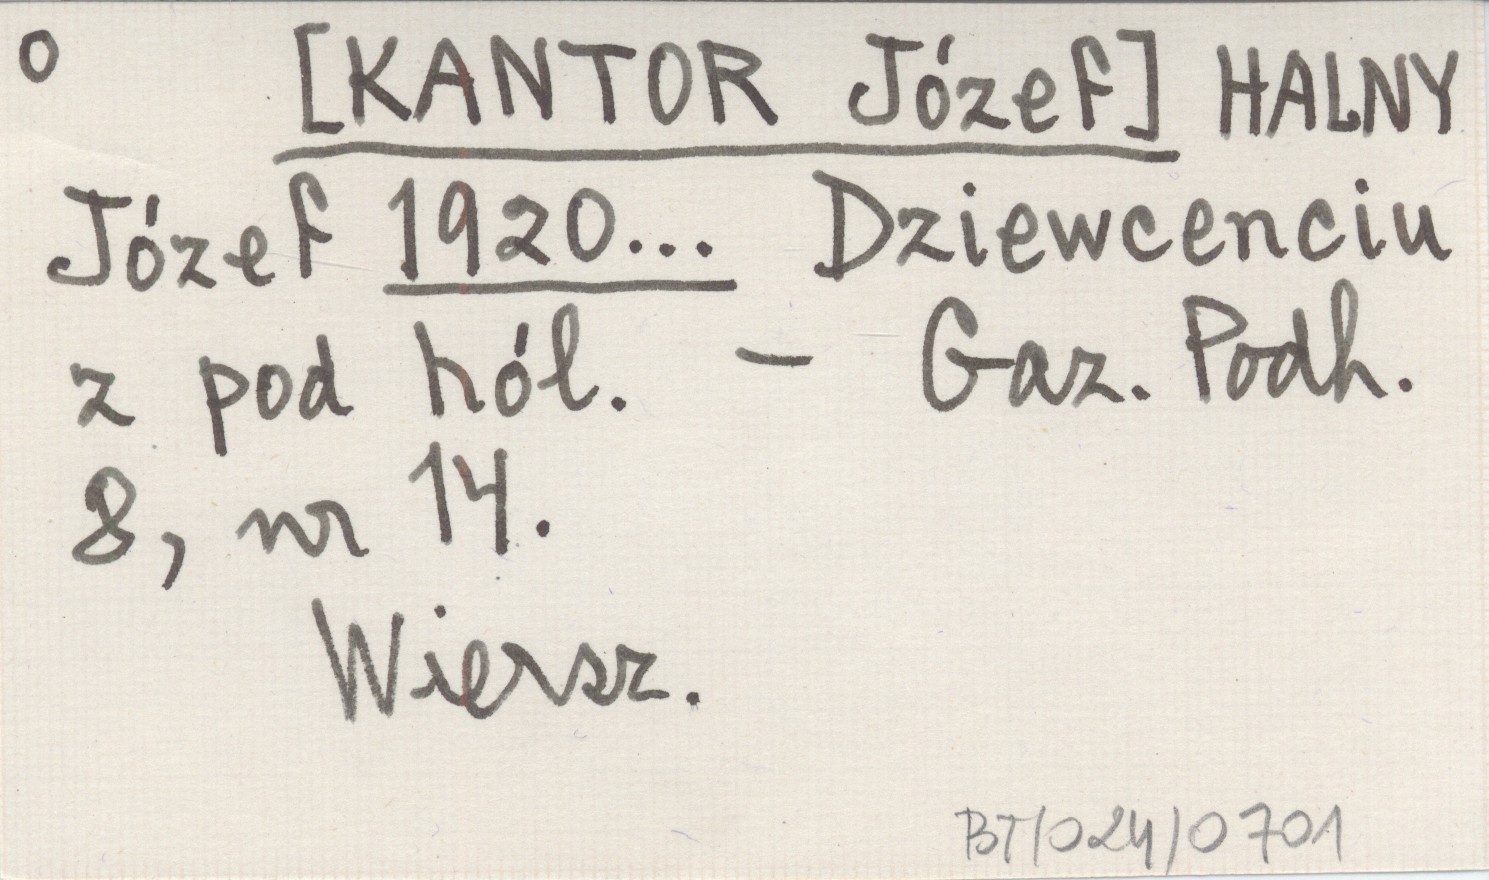 O [KANTOR Józef] HALNY
Józef 1920... Dziewcenciu
z pod hól. – Gaz. Podh.
8, nr 14.
Wiersz.
BT/024/0701